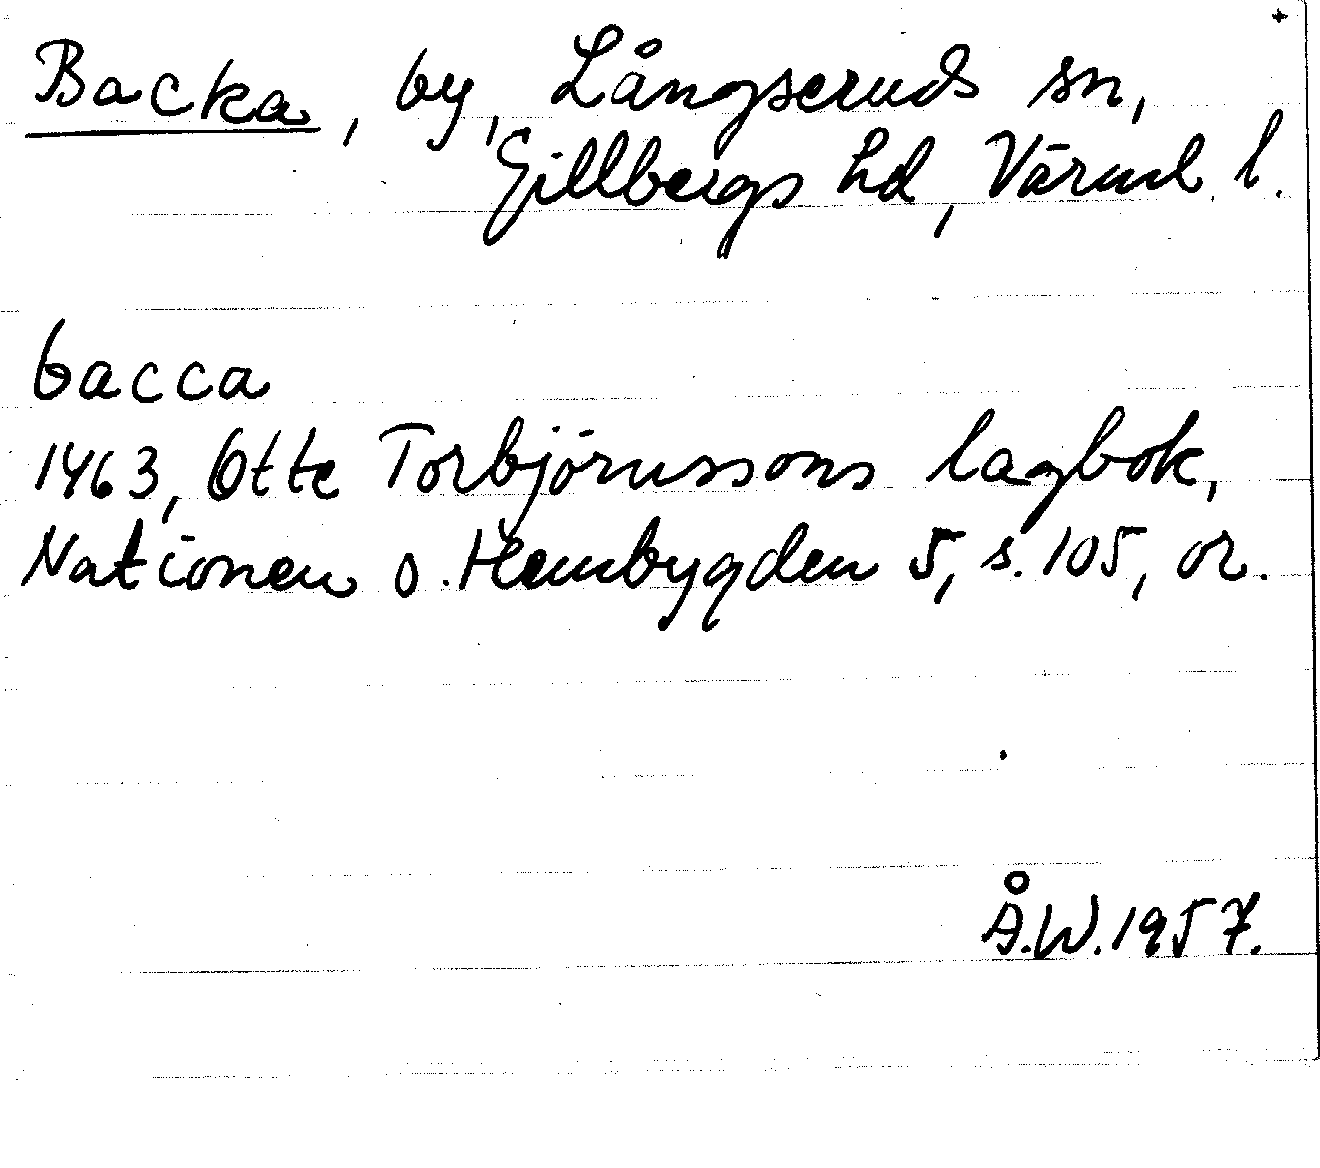 Backa, by, Långseruds sn,
Gillbergs hd, Värml. l.
bacca
1463, Otte Torbjörnssons lagbok,
Nationen o. Hembygden 5, s. 105, or.
Å.W. 1957.